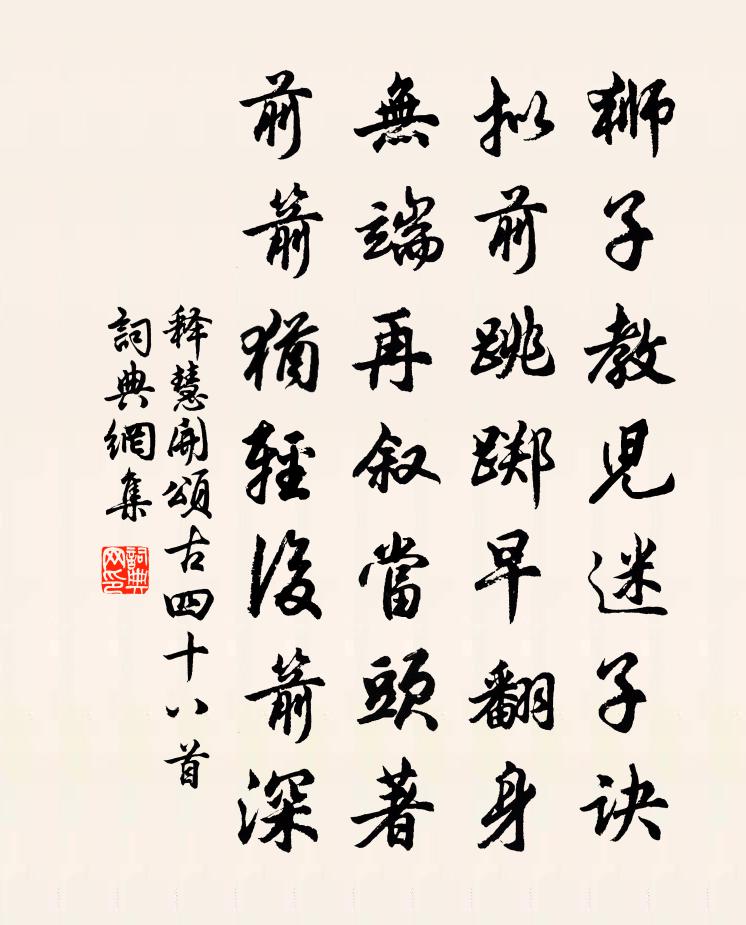 獅子教児迷子訣
拟前跳踯早翻身
無端再叙當頭著
前箭猶輕後箭深
释慧開頌古四十八首
詞典網集
詞典网印